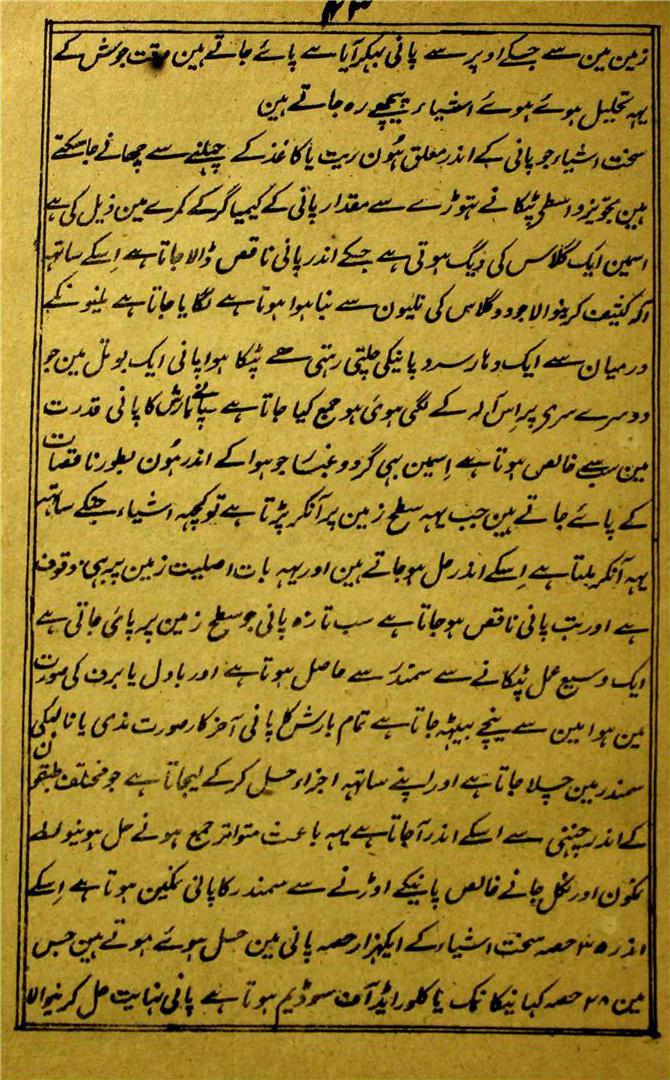 ۴۳
زمین مین سے جسکے اوپر سے پانی بہکر آیا سے پائے جاتے ہین وقت جوش کے
یہہ تحلیل ہوئے ہوئے اشیاء پیچھے رہ جاتے ہین
سخت اشیاء جو پانی کے اندر معلق ہُون ریت یا کاغذ کے چھلنے سے چھانے جا سکتے
ہین تجویز واسطی ٹپکانے تہوڑے سے مقدار پانی کے کیمیا گر کے کمرے مین ذیل کی ہے
اسمین ایک گلاس کی دیگ ہوتی ہے جسکے اندر پانی ناقص ڈالا جاتا ہے اِسکے ساتہہ
آلہ کثیف کرنیوالا جو دو گلاس کی نلیون سے بنا ہوا ہوتا ہے لگایا جاتا ہے نلیونکے
درمیان سے ایک دہار سرد پانیکی چلتی رہتی ہے ٹپکا ہوا پانی ایک بوتل مین جو
دوسرے سری پر اِس آلہ کے لگی ہوئی ہو جمع کیا جاتا ہے بارش کا پانی قدرت
مین سب سے خالص ہوتا ہے اِسمین بہی گرد و غبار جو ہوا کے اندر ہُون بطور ناقصات
کے پائے جاتے ہین جب یہہ سطح زمین پر آنکر پڑتا ہے تو کچہہ اشیاء جنکے ساتہہ
یہہ آنکر ملتا ہے اِسکے اندر حل ہو جاتے ہین اور یہہ بات اصلیت زمین پر بہی موقوف
ہے اور تب پانی ناقص ہو جاتا ہے سب تازہ پانی جو سطح زمین پر پائی جاتی ہے
ایک وسیع عمل ٹپکانے سے سمندر سے حاصل ہوتا ہے اور بادل یا برف کی صورت
مین ہوا مین سے نیچے بیٹہہ جاتا ہے تمام بارش کا پانی آخر کار صورت ندی یا نالیکی
سمندر مین چلا جاتا ہے اور اپنے ساتہہ اجزاء حل کر کے لیجاتا ہے جو مختلف طبقون
کے اندر چھننی سے اسکے اندر آ جاتا ہے یہہ باعث متواتر جمع ہونے حل ہونیوالے
نمکون اور نکل جانے خالص پانیکے اوڑنے سے سمندر کا پانی نمکین ہوتا ہے اِسکے
اندر ۳۵ حصہ سخت اشیاء کے ایکہزار حصہ پانی مین حل ہوئے ہوتے ہین جس
مین ۲۸ حصہ کہانیکا نمک یا کلورایڈ آف سوڈیم ہوتا ہے پانی نہایت حل کرنیوالا